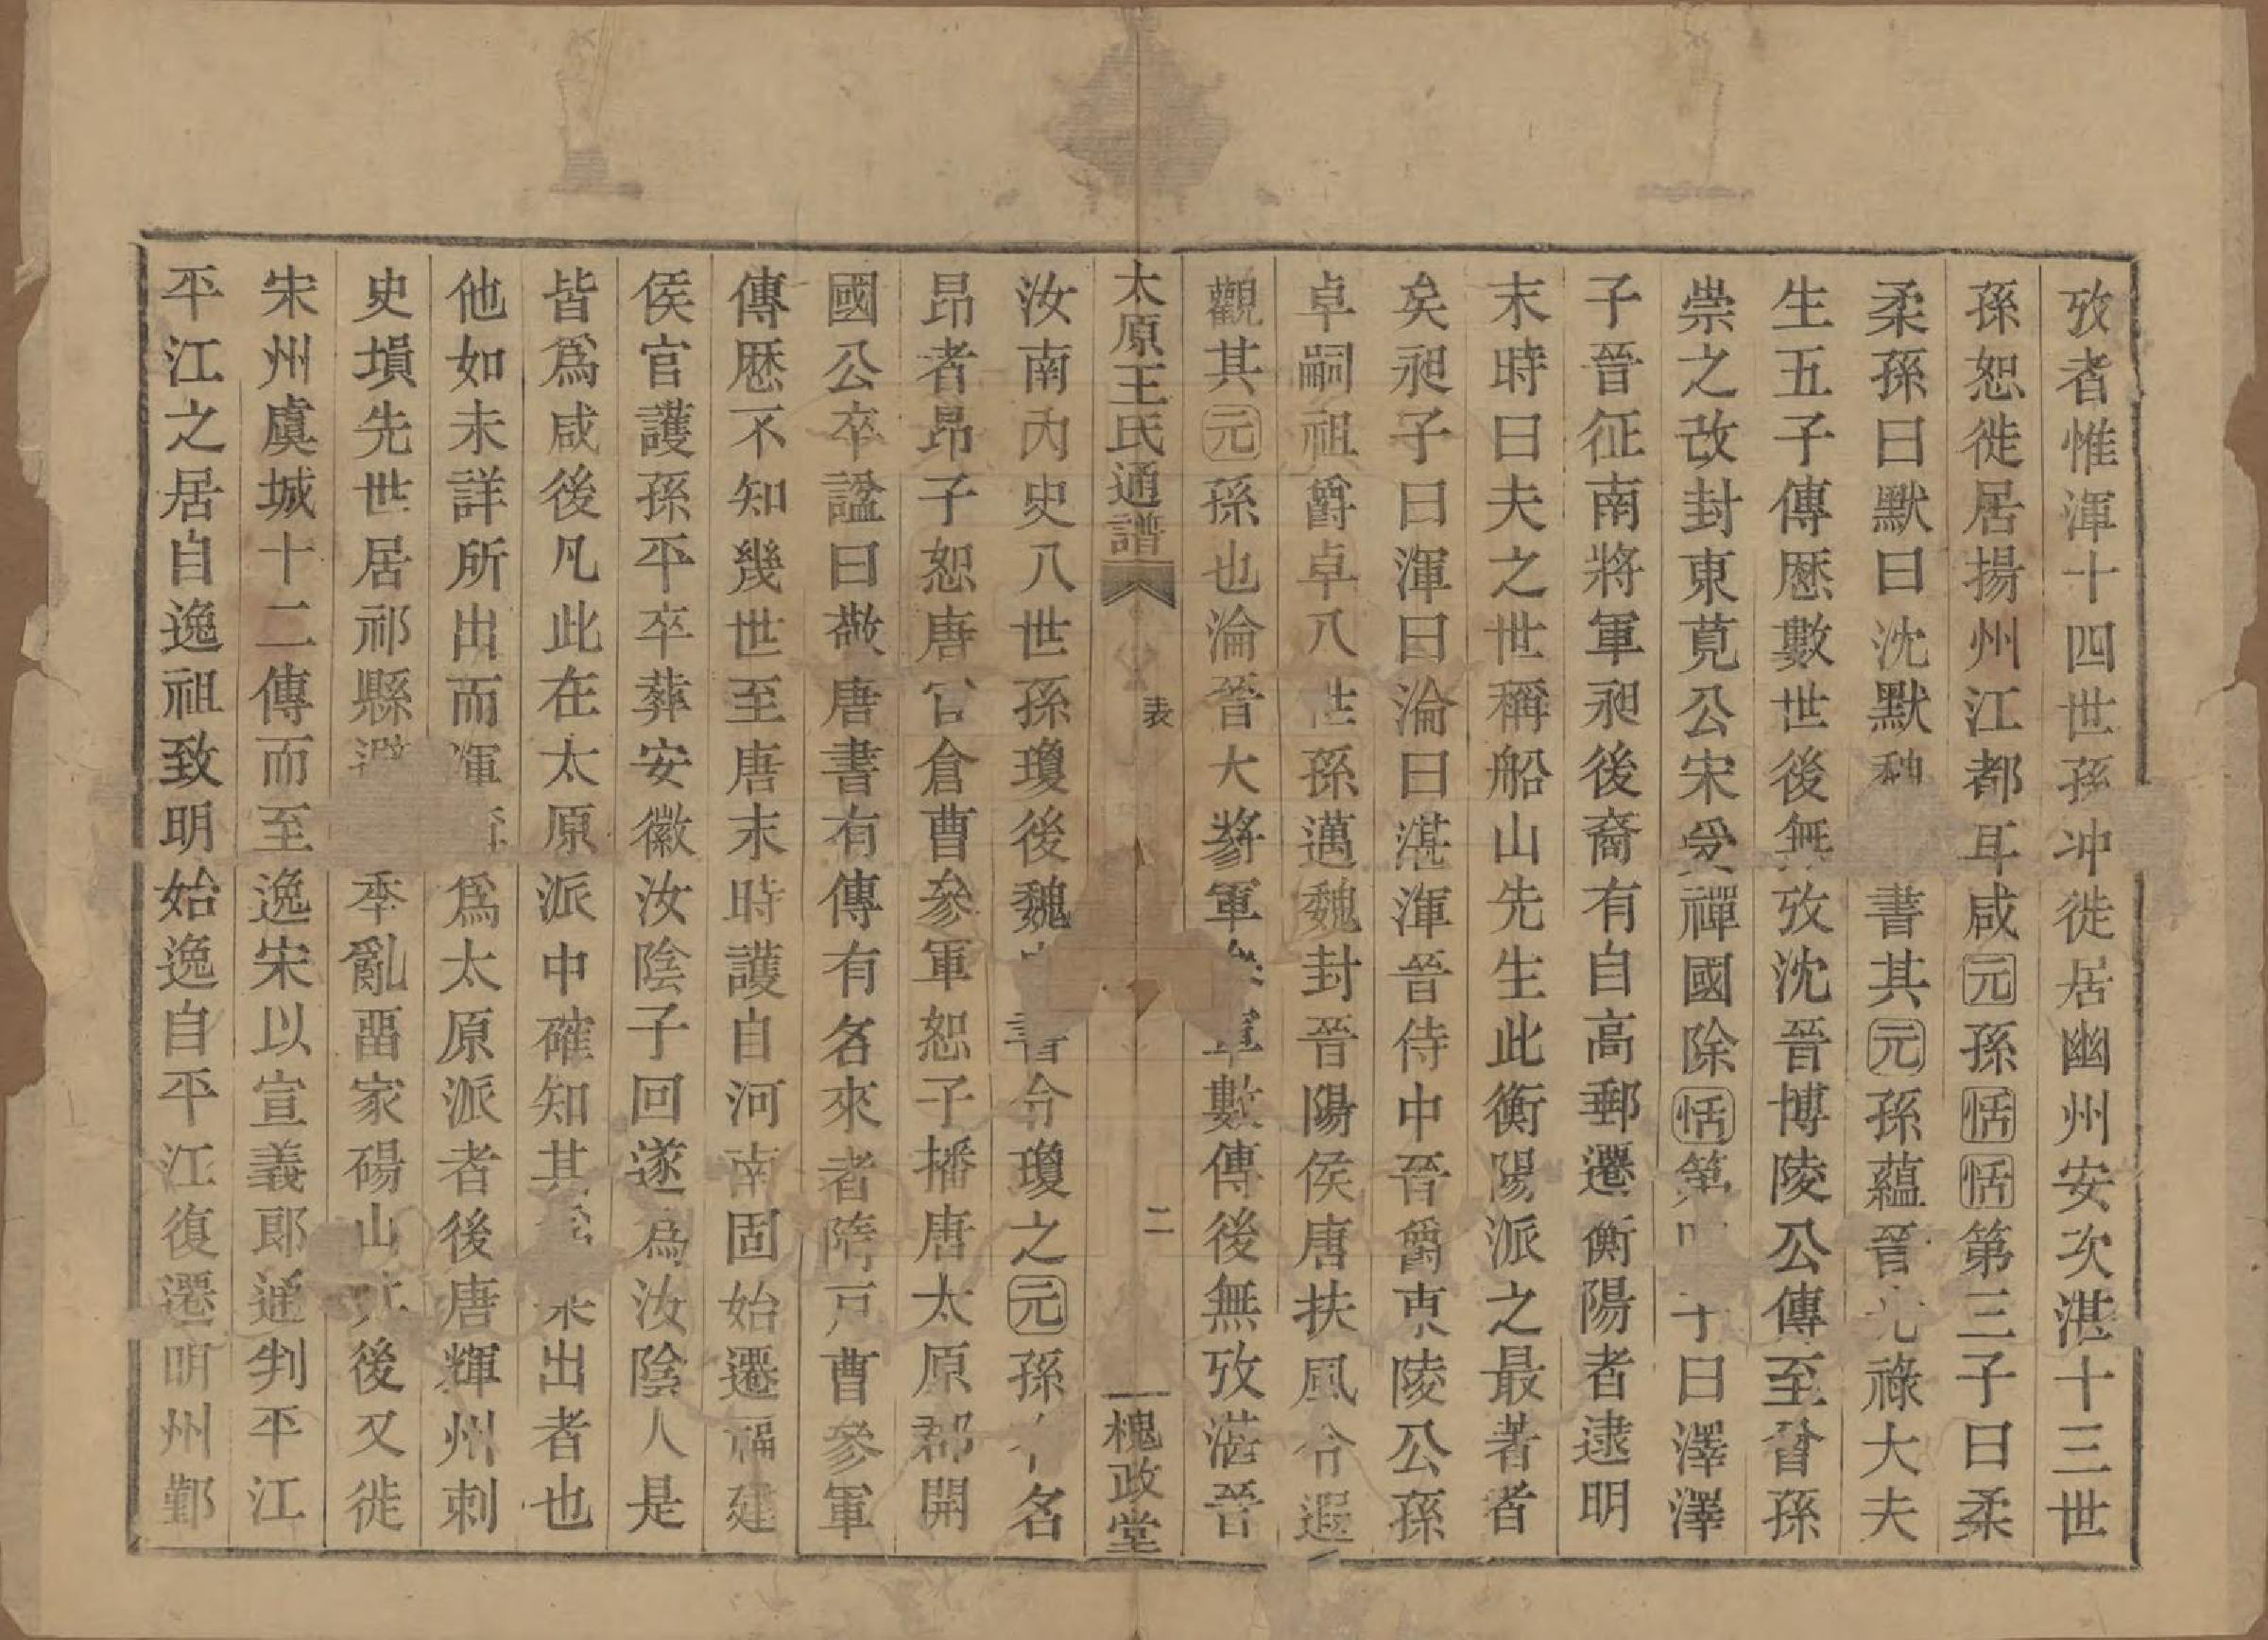 攷者惟渾十四世孫冲徙居幽州安次湛十三世
孫恕徙居揚州江都耳咸元孫恬恬第三子曰柔
柔孫曰默曰沈默 書其元孫蘊晉光祿大夫
生五子傳歷數世後無攷沈晉博陵公傳至晉孫
崇之改封東莞公宋受禪國除恬第 子曰澤澤
子晉征南將軍昶後裔有自高郵遷衡陽者逮明
末時曰夫之世稱船山先生此衡陽派之最著者
矣昶子曰渾曰淪曰湛渾晉侍中晉爵東陵公孫
卓嗣祖爵卓八世孫邁魏封晉陽侯唐扶風令遐
觀其元孫也淪晉大將軍參軍數傳後無攷湛晉
太原王氏通譜
表
二
槐政堂
汝南內史八世孫瓊後魏 書令瓊之元孫 名
昂者昂子恕唐官倉曹參軍恕子播唐太原郡開
國公卒諡曰敬唐書有傳有名來者隋戸曹參軍
傳歷不知幾世至唐末時護自河南固始遷福建
侯官護孫平卒葬安徽汝陰子回遂爲汝陰人是
皆爲咸後凡此在太原派中確知其 出者也
他如未詳所出而渾 爲太原派者後唐輝州刺
史塤先世居祁縣避 季亂畱家碭山 後又徙
宋州虞城十二傳而至逸宋以宣義郎通判平江
平江之居自逸祖致明始逸自平江復遷明州鄞